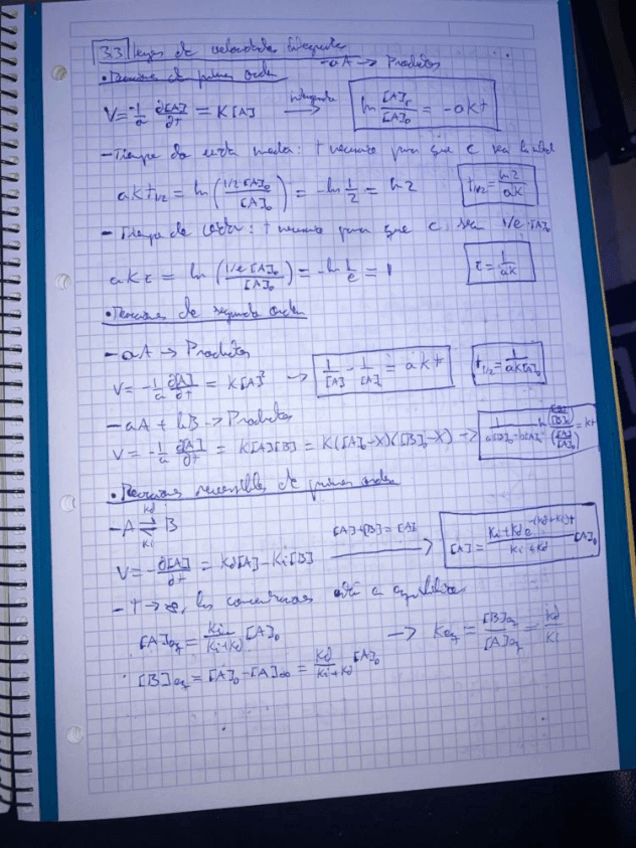 3.3 Leyes de velocidades integradas
• Reacciones de primer orden aA → Productos
V = -1/a ∂[A]/∂t = K[A] integrando → ln [A]t/[A]₀ = -akt
- Tiempo de vida media: t necesario para que c sea la mitad
akt1/2 = ln (1/2·[A]₀/[A]₀) = -ln 1/2 = ln 2 t1/2 = ln 2/ak
- Tiempo de : t necesario para que c sea 1/e·[A]₀
akτ = ln (1/e [A]₀/[A]₀) = -ln 1/e = 1 τ = 1/ak
• Reacciones de segundo orden
- aA → Productos
V = -1/a ∂[A]/∂t = K[A]² → 1/[A] - 1/[A]₀ = akt t1/2 = 1/ak[A]₀
- aA + bB → Productos
V = -1/a ∂[A]/∂t = K[A][B] = K([A]₀-X)([B]₀-X) → = kt
• Reacciones reversibles de primer orden
- A ⇌ B Kd Ki
V = -∂[A]/∂t = Kd[A] - Ki[B] [A]+[B] = [A]₀ → [A] = Ki+Kd e^-(Kd+Ki)t/Ki+Kd [A]₀
- t → ∞, las a equilibrio
[A]eq = Ki/Ki+Kd [A]₀ → Keq = [B]eq/[A]eq = Kd/Ki
[B]eq = [A]₀ - [A]∞ = Kd/Ki+Kd [A]₀